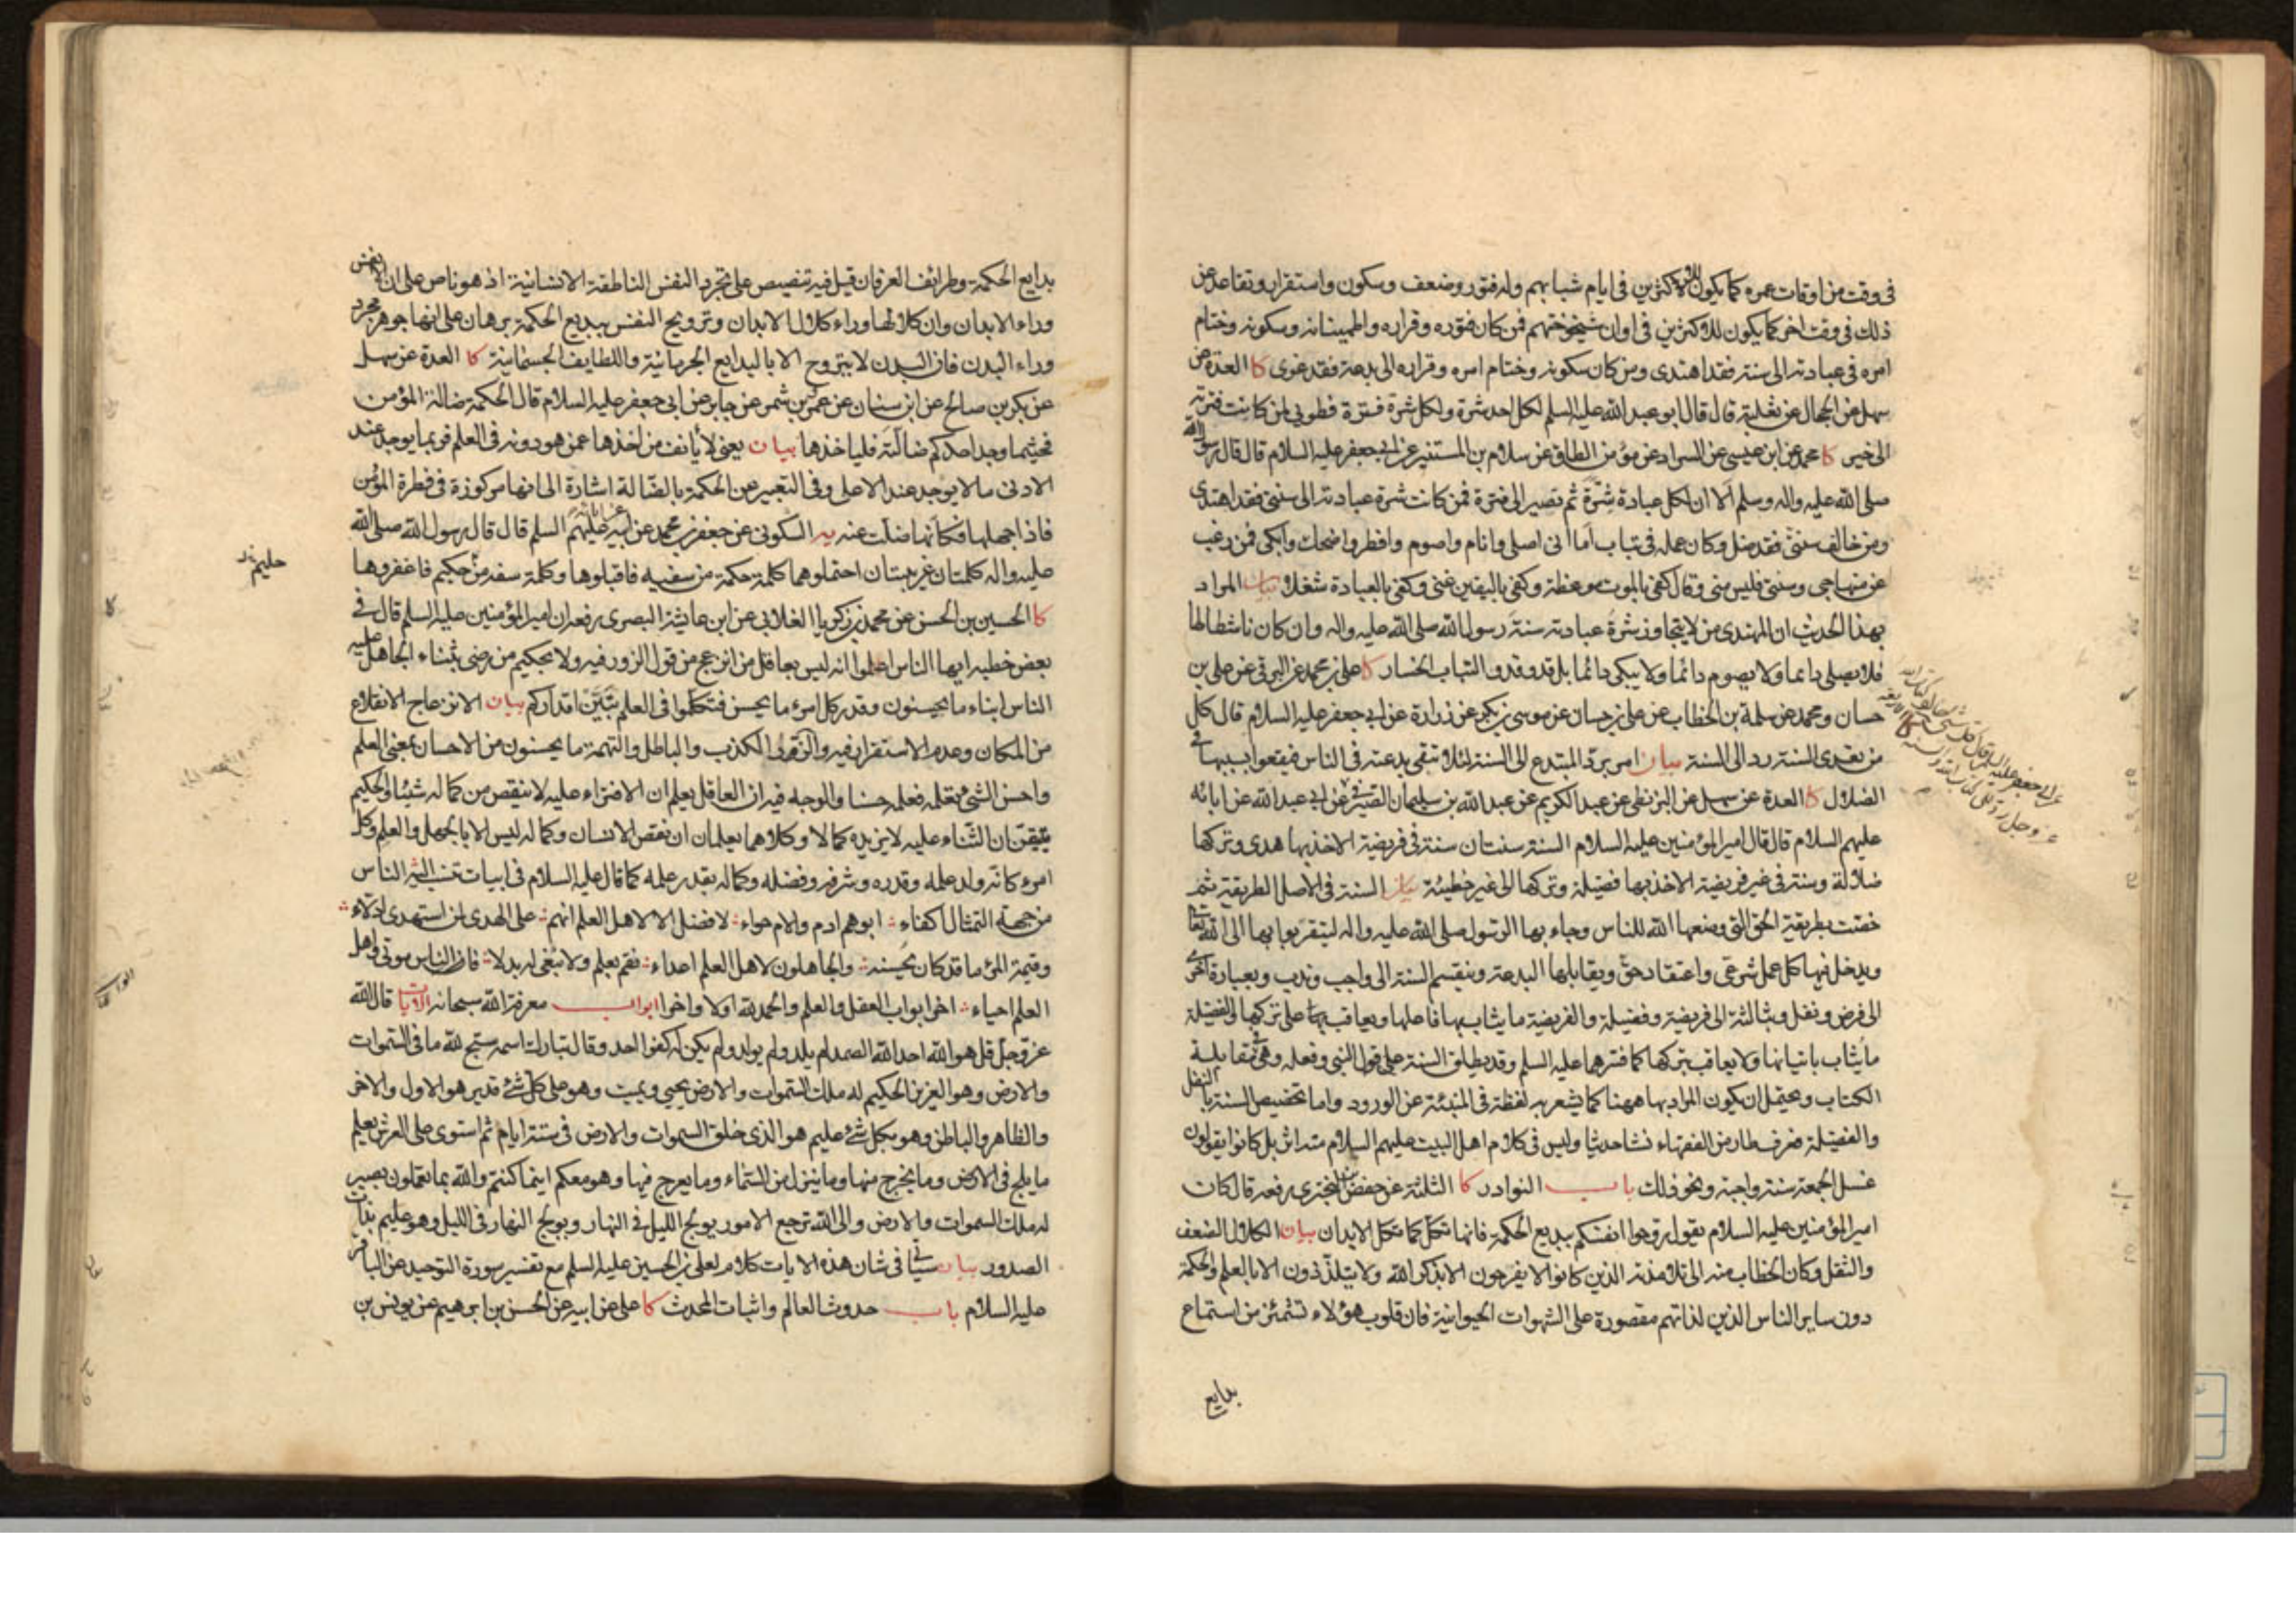 فى وقت من اوقات عمره كما يكون للاكثرين فى ايام شبابهم وله فتور وضعف وسكون واستقرار وتقاعد عن
ذلك فى وقت اخر كما يكون للاكثرين فى اوان شيخوختهم فمن كان فتوره وقراره واطمينانه وسكونه وختام
امره فى عبادته الى سنته فقد اهتدى ومن كان سكونه وختام امره وقراره الى بدعة فقد غوى كا العدة عن
سهل عن الحجال عن ثعلبة قال قال ابو عبد الله عليه السلم لكل احد شرة ولكل شرة فترة فطوبى لمن كانت فترته
الى خير كا محمد عن ابن عيسى عن السراد عن مؤمن الطاق عن سلام بن المستنير عن ابى جعفر عليه السلام قال قال رسول الله
صلى الله عليه واله وسلم الا ان لكل عبادة شرة ثم تصير الى فترة فمن كانت شرة عبادته الى سنتى فقد اهتدى
ومن خالف سنتى فقد ضل وكان عمله فى تباب اما انى اصلى وانام واصوم وافطر واضحك وابكى فمن رغب
عن منهاجى وسنتى فليس منى وقال كفى بالموت موعظة وكفى باليقين غنى وكفى بالعبادة شغلا بيان المراد
بهذا الحديث ان المهتدى من لا يتجاوز شرة عبادته سنة رسول الله صلى الله عليه واله وان كان ناشطا لها
فلا يصلى دائما ولا يصوم دائما ولا يبكى دائما بل قد وقد والتباب الخسار كا على بن محمد عن البرقى عن على بن
حسان ومحمد عن سلمة بن الخطاب عن على بن حسان عن موسى بن بكر عن زرارة عن ابى جعفر عليه السلام قال كل
من تعدى السنة رد الى السنة بيان امر برد المبتدع الى السنة لئلا تبقى بدعته فى الناس فيقعوا بسببها فى
الضلال كا العدة عن سهل عن البزنطى عن عبد الكريم عن عبد الله بن سليمان الصيرفى عن ابى عبد الله عن ابائه
عليهم السلام قال قال امير المؤمنين عليه السلام السنة سنتان سنة فى فريضة الاخذ بها هدى وتركها
ضلالة وسنة فى غير فريضة الاخذ بها فضيلة وتركها الى غير خطيئة بيان السنة فى الاصل الطريقة ثم
خصت بطريقة الحق التى وضعها الله للناس وجاء بها الرسول صلى الله عليه واله ليتقربوا بها الى الله تعالى
ويدخل فيها كل عمل شرعى واعتقاد حق ويقابلها البدعة وينقسم السنة الى واجب وندب وبعبارة اخرى
الى فرض ونفل وبثالثة الى فريضة وفضيلة والفريضة ما يثاب بها فاعلها ويعاقب بها على تركها والفضيلة
ما يثاب باتيانها ولا يعاقب بتركها كما فسرهما عليه السلم وقد يطلق السنة على قول النبى وفعله وهى فى مقابلة
الكتاب ويحتمل ان يكون المراد بها ههنا كما يشعر به لفظة فى المنبئة عن الورود واما تخصيص السنة بالنفل
والفضيلة فعرف طار من الفقهاء نشا حديثا وليس فى كلام اهل البيت عليهم السلام منه اثر بل كانوا يقولون
غسل الجمعة سنة واجبة ونحو ذلك باب النوادر كا الثلثة عن حفص بن البخترى رفعه قال كان
امير المؤمنين عليه السلام يقول روحوا انفسكم ببديع الحكمة فانها تكل كما تكل الابدان بيان الكلال الضعف
والثقل وكان الخطاب منه الى تلامذته الذين كانوا لا يفرحون الا بذكر الله ولا يتلذذون الا بالعلم والحكمة
دون ساير الناس الذين لذاتهم مقصورة على الشهوات الحيوانية فان قلوب هؤلاء تشمئز من استماع
بدايع
بدايع الحكمة وطرائف العرفان قيل فيه تنصيص على تجرد النفس الناطقة الانسانية اذ هو ناص على ان الانفس
وراء الابدان وان كلالها وراء كلال الابدان وترويح النفس ببديع الحكمة برهان على انها جوهر مجرد
وراء البدن فان البدن لا يتروح الا بالبدايع الجرمانية واللطايف الجسمانية كا العدة عن سهل
عن بكر بن صالح عن ابن سنان عن عمرو بن شمر عن جابر عن ابى جعفر عليه السلام قال الحكمة ضالة المؤمن
فحيثما وجد احدكم ضالته فلياخذها بيان يعنى لا يانف من اخذها عمن هو دونه فى العلم فربما يوجد عند
الادنى ما لا يوجد عند الاعلى وفى التعبير عن الحكمة بالضالة اشارة الى انها مركوزة فى فطرة المؤمن
فاذا جهلها فكانها ضلت عنه يه السكونى عن جعفر بن محمد عن ابيه عن ابائه عليهم السلم قال قال رسول الله صلى الله
عليه واله كلمتان غريبتان احتملوهما كلمة حكمة من سفيه فاقبلوها وكلمة سفه من حكيم فاغفروها
كا الحسين بن الحسن عن محمد بن زكريا الغلابى عن ابن عائشة البصرى رفعه ان امير المؤمنين عليه السلم قال فى
بعض خطبه ايها الناس اعلموا انه ليس بعاقل من انزعج من قول الزور فيه ولا بحكيم من رضى بثناء الجاهل عليه
الناس ابناء ما يحسنون وقدر كل امرء ما يحسن فتكلموا فى العلم تبين اقداركم بيان الانزعاج الانقلاع
من المكان وعدم الاستقرار فيه والزور الكذب والباطل والتهمة ما يحسنون من الاحسان بمعنى العلم
واحسن الشئ تعلمه فعلمه حسنا والوجه فيه ان العاقل يعلم ان الافتراء عليه لا ينقص من كماله شيئا والحكيم
يتيقن ان الثناء عليه لا يزيده كمالا وكلاهما يعلمان ان نقص الانسان وكماله ليس الا بالجهل والعلم وكل
امرء كانه ولد علمه وقدره وشرفه وفضله وكماله بقدر علمه كما قال عليه السلام فى ابيات تنسب اليه الناس
من جهة التمثال اكفاء ابوهم ادم والام حواء لا فضل الا لاهل العلم انهم على الهدى لمن استهدى ادلاء
وقيمة المرء ما قد كان يحسنه والجاهلون لاهل العلم اعداء فقم بعلم ولا تبغى له بدلا فان الناس موتى واهل
العلم احياء اخر ابواب العقل والعلم والحمد لله اولا واخرا ابواب معرفة الله سبحانه الايات قال الله
عز وجل قل هو الله احد الله الصمد لم يلد ولم يولد ولم يكن له كفوا احد وقال تبارك اسمه سبح لله ما فى السموات
والارض وهو العزيز الحكيم له ملك السموات والارض يحيى ويميت وهو على كل شئ قدير هو الاول والاخر
والظاهر والباطن وهو بكل شئ عليم هو الذى خلق السموات والارض فى ستة ايام ثم استوى على العرش يعلم
ما يلج فى الارض وما يخرج منها وما ينزل من السماء وما يعرج فيها وهو معكم اينما كنتم والله بما تعملون بصير
له ملك السموات والارض والى الله ترجع الامور يولج الليل فى النهار ويولج النهار فى الليل وهو عليم بذات
الصدور بيان سياتى فى شان هذه الايات كلام لعلى بن الحسين عليه السلم مع تفسير سورة التوحيد عن الباقر
عليه السلام باب حدوث العالم واثبات المحدث كا على عن ابيه عن الحسن بن ابرهيم عن يونس بن